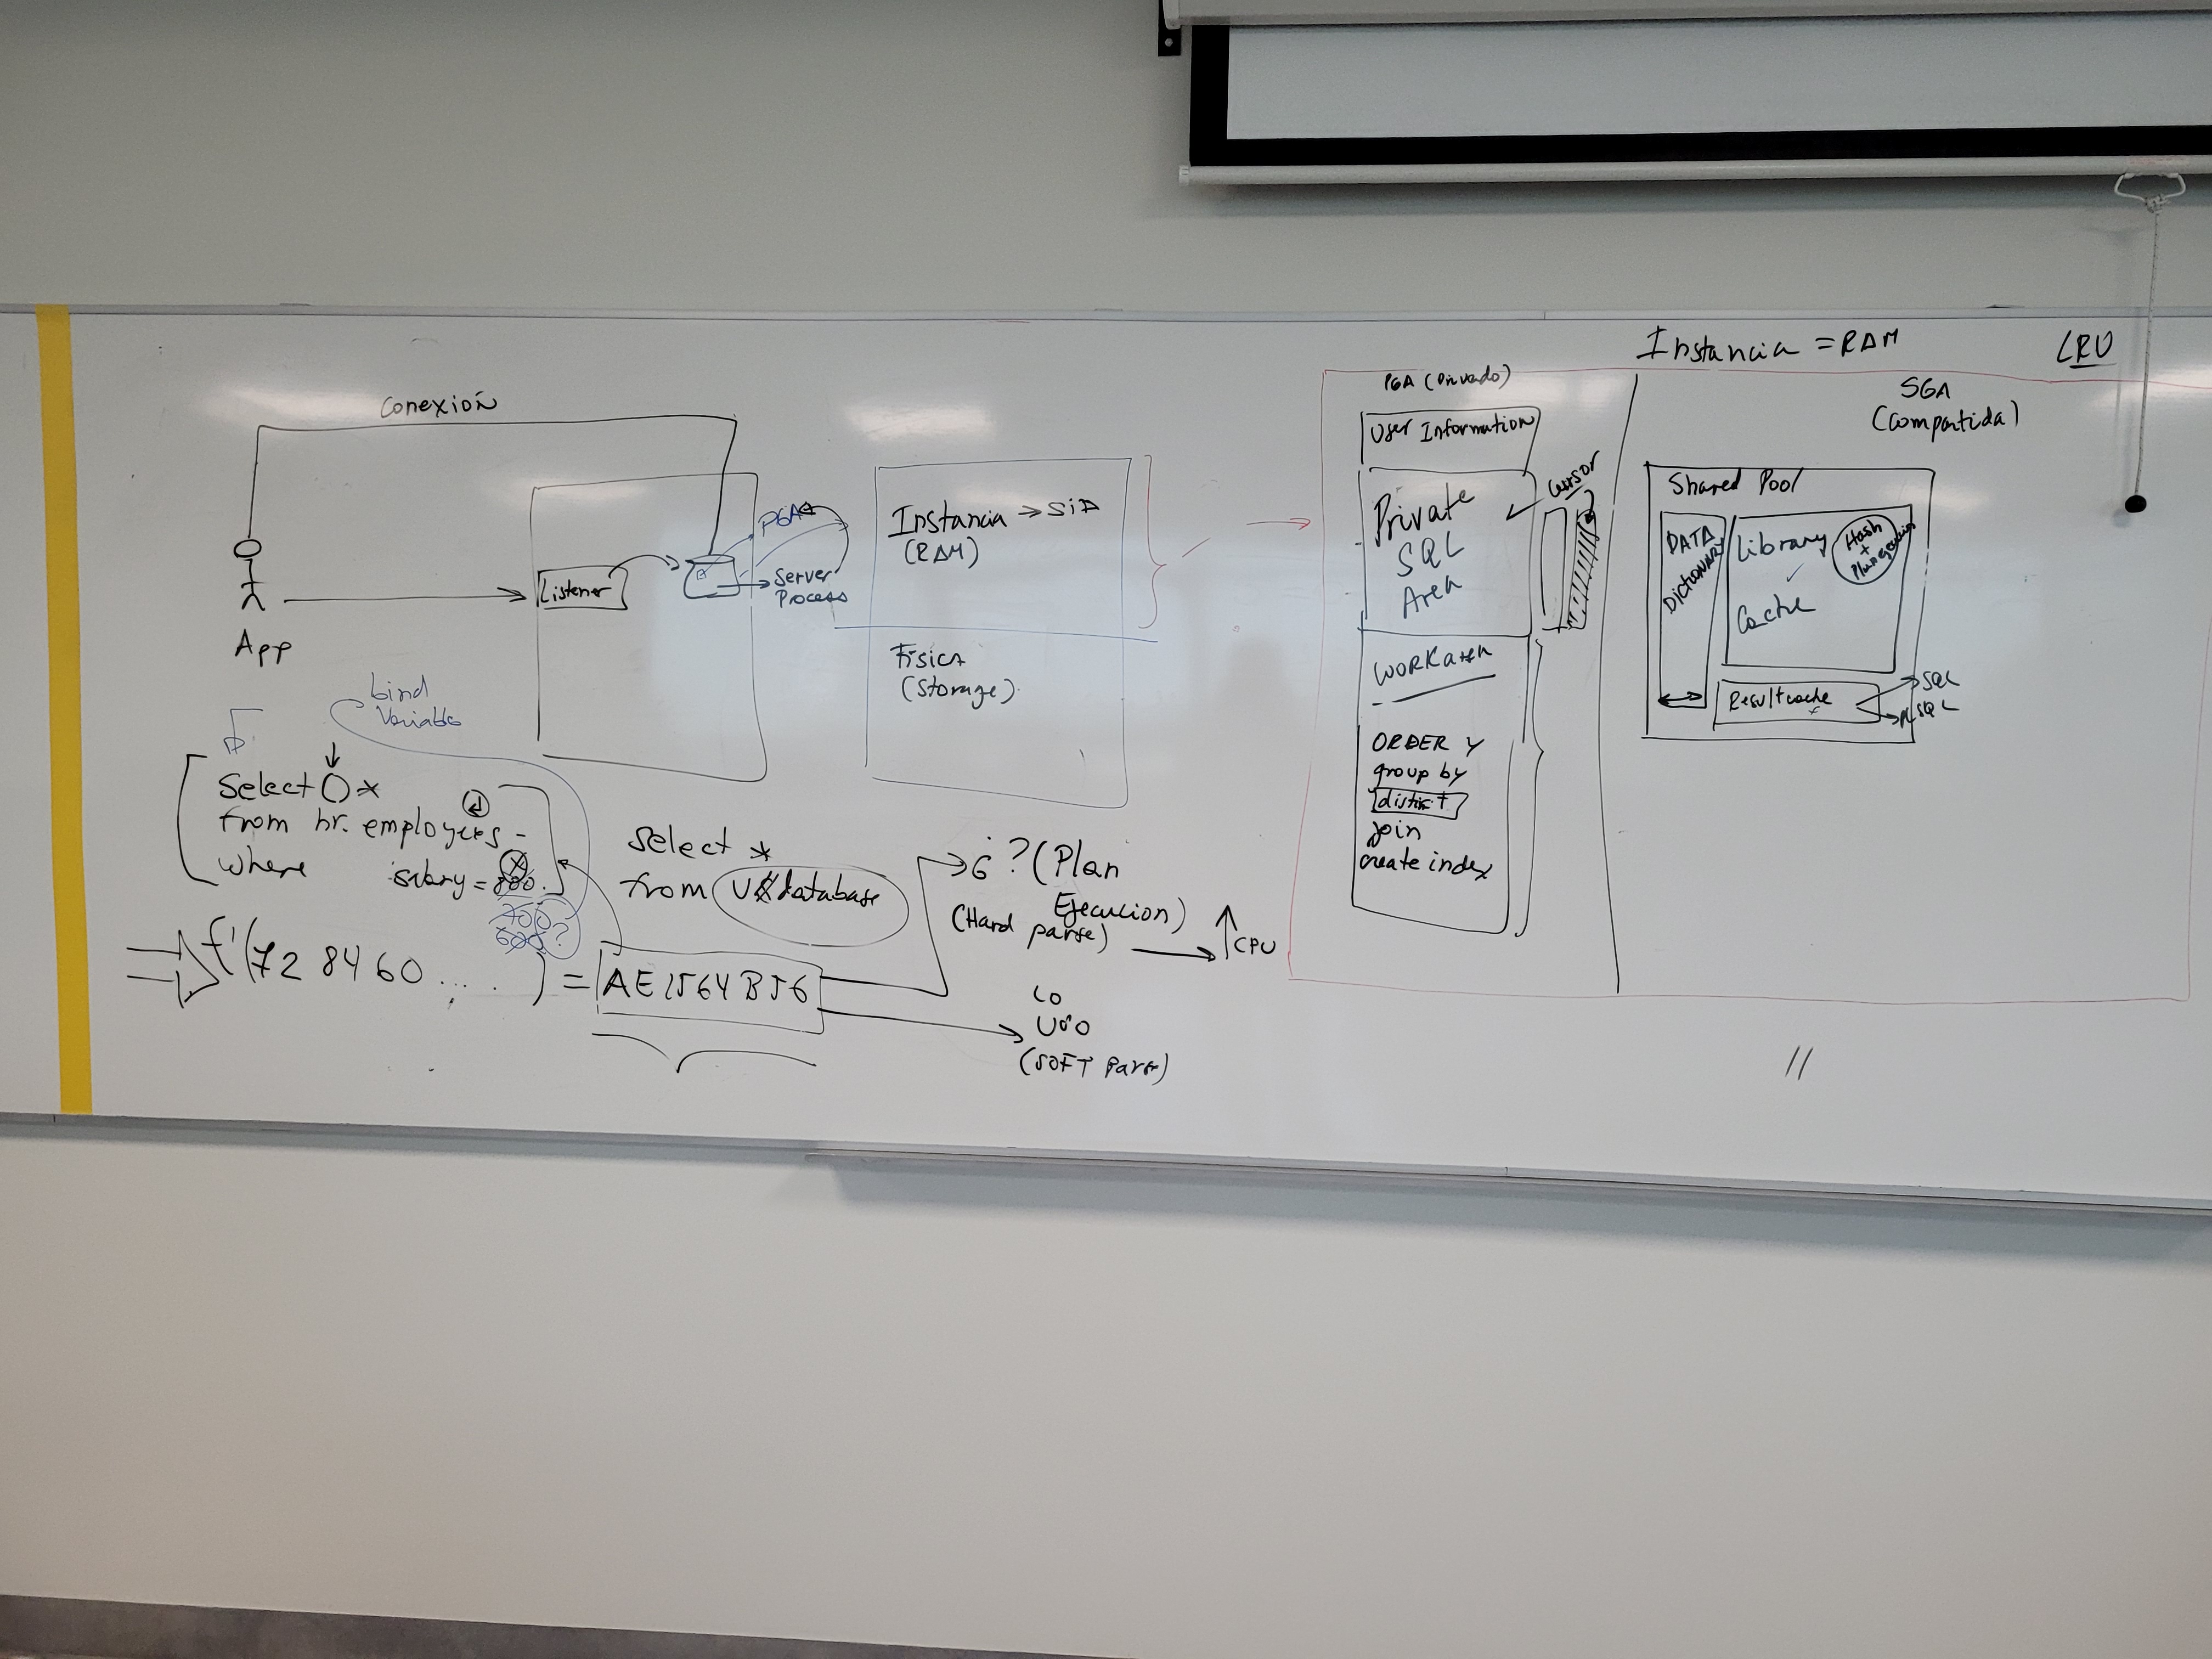 Conexión
App
Listener
PGA
Server
Process
Instancia → SID
(RAM)
Física
(Storage)
bind
Variable
Select *
from hr. employees
where salary = 800.
700
600 ?
f'(72 84 60 .... ) = AE1564B56
select *
from V$database
¿ ? (Plan
Ejecucion)
(Hard parse) → ↑ CPU
Lo
Uso
(SOFT Parse)
Instancia = RAM
LRU
PGA (Privado)
User Information
Private
SQL
Area
Cursor
WORKarea
ORDER Y
group by
distinct
join
create index
SGA
(Compartida)
Shared Pool
DATA
DICTIONARY
Library
Cache
Hash
+
Result cache
SQL
PL SQL